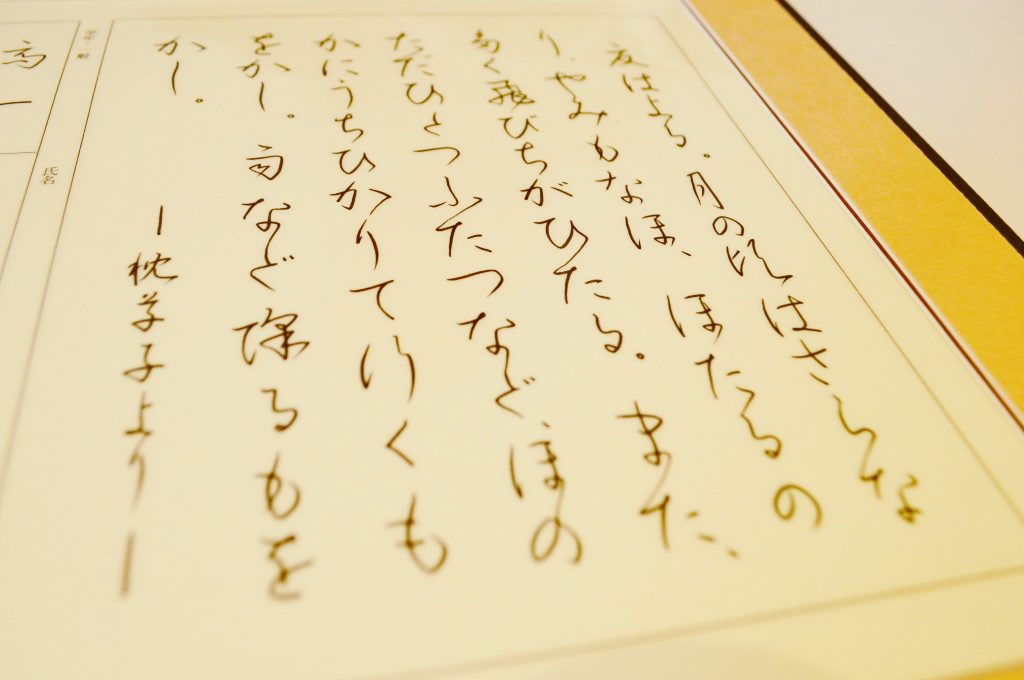 夏はよる。月の頃はさらな
り、やみもなほ、ほたるの
多く飛びちがひたる。また、
ただひとつふたつなど、ほの
かにうちひかりて行くも
をかし。雨など降るもを
かし。
ー枕草子よりー
学年・一般
高一
氏名